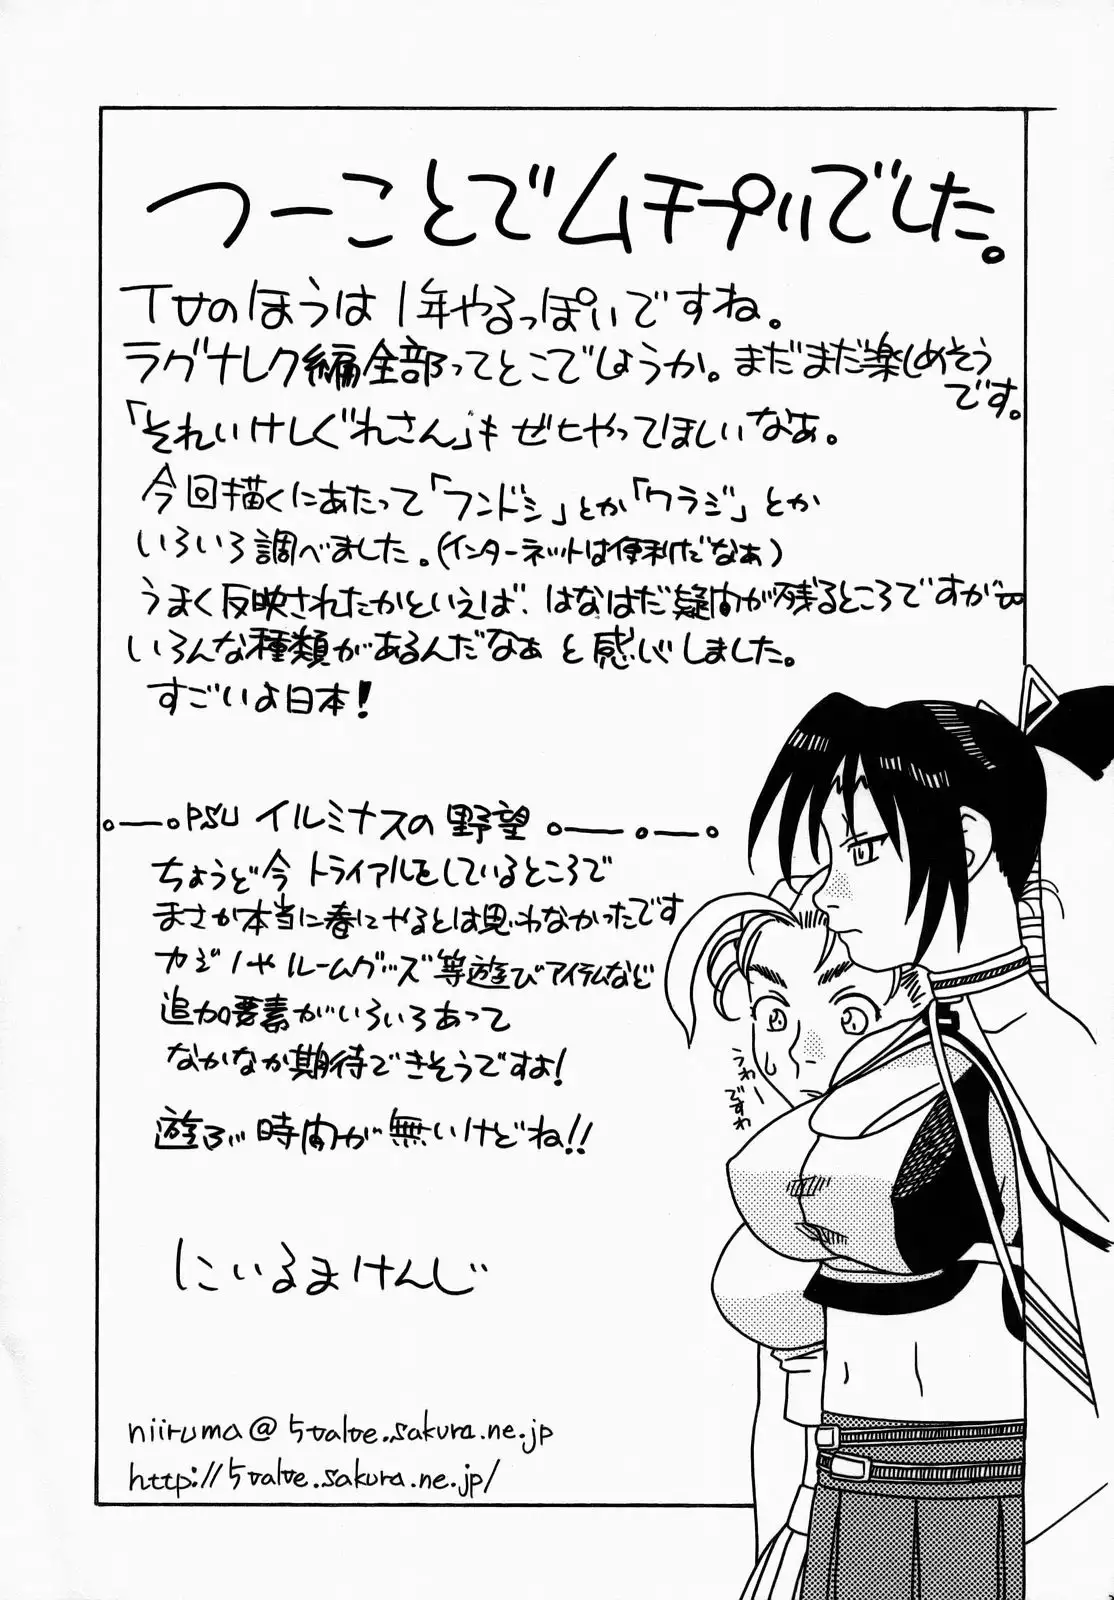 つーことでムチプリでした。
TVのほうは1年やるっぽいですね。
ラグナレク編全部ってとこでしょうか。まだまだ楽しめそう
です。
「それいけしぐれさん」も ぜヒやってほしいなぁ。
今回描くにあたって「フンドシ」とか「ワラジ」とか
いろいろ調べました。(インターネットは便利だなぁ)
うまく反映されたかといえば、はなはだ疑問が残るところですが
いろんな種類があるんだなぁ と感じしました。
すごいよ日本!
PSU イルミナスの野望
ちょうど今 トライアルをしているところで
まさか本当に春にやるとは思わなかったです
カジノや ルームグッズ等遊びアイテムなど
追加要素がいろいろあって
なかなか期待できそうですよ!
遊ぶ時間が無いけどね!!
うわー
ですわ
にいるまけんじ
niiruma@5valve.sakura.ne.jp
http://5valve.sakura.ne.jp/